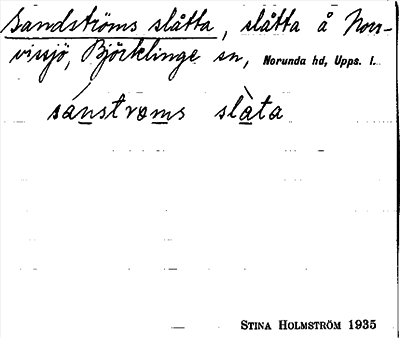 Sandströms slåtta, slåtta å Norr-
vissjö, Björklinge sn, Norunda hd, Upps. l.
sánstrɷms slàta
STINA HOLMSTRÖM 1935